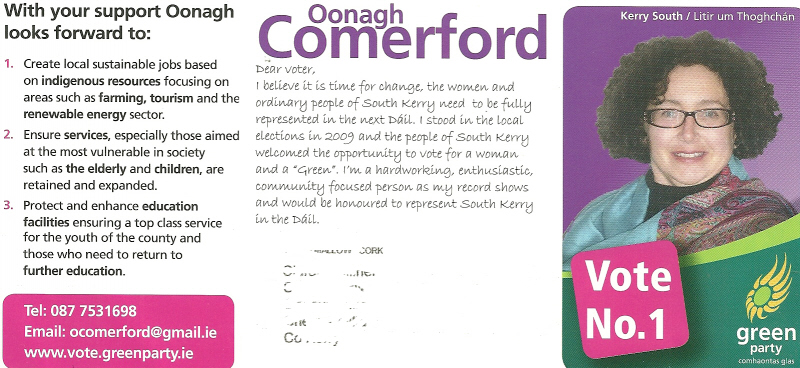 With your support Oonagh
looks forward to:
1. Create local sustainable jobs based
on indigenous resources focusing on
areas such as farming, tourism and the
renewable energy sector.
2. Ensure services, especially those aimed
at the most vulnerable in society
such as the elderly and children, are
retained and expanded.
3. Protect and enhance education
facilities ensuring a top class service
for the youth of the county and
those who need to return to
further education.
Tel: 087 7531698
Email: ocomerford@gmail.ie
www.vote.greenparty.ie
Oonagh
Comerford
Dear voter,
I believe it is time for change, the women and
ordinary people of South Kerry need to be fully
represented in the next Dáil. I stood in the local
elections in 2009 and the people of South Kerry
welcomed the opportunity to vote for a woman
and a "Green". I'm a hardworking, enthusiastic,
community focused person as my record shows
and would be honoured to represent South Kerry
in the Dáil.
CORK
Kerry South / Litir um Thoghchán
Vote
No.1
green
party
comhaontas glas